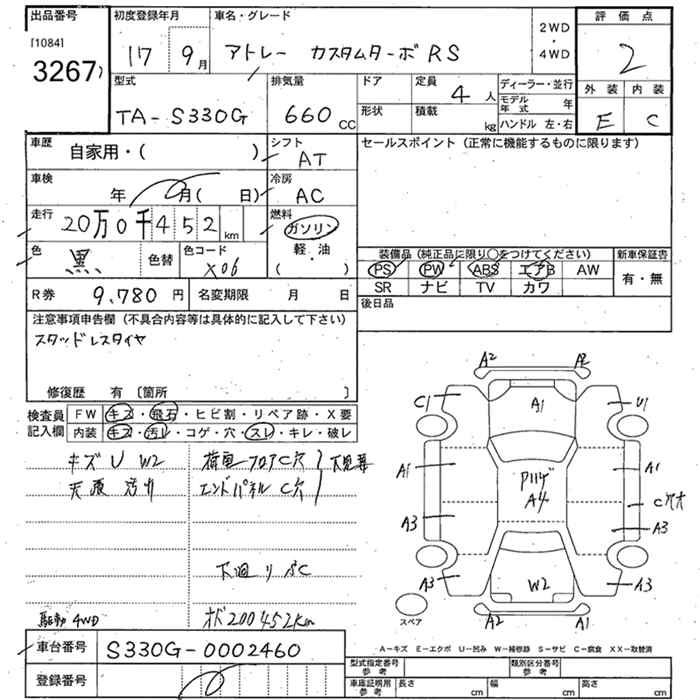 出品番号 初度登録年月 車名・グレード 2WD・4WD 評価点
[1084]
3267) 17 9月 アトレー カスタムターボRS 2
型式 排気量 ドア 定員 4人 ディーラー・並行 外装 内装
TA-S330G 660cc 形状 積載 kg モデル年式 年 ハンドル 左・右 E C
車歴 自家用・( ) シフト AT セールスポイント(正常に機能するものに限ります)
車検 年 月( 日) 冷房 AC
走行 20万0千452km 燃料 ガソリン
軽・油
( )
色 黒 色替 色コード X06
装備品(純正品に限り○をつけてください) 新車保証書
PS PW ABS エアB AW 有・無
SR ナビ TV カワ
R券 9,780円 名変期限 月 日 後日品
注意事項申告欄(不具合内容等は具体的に記入して下さい)
スタッドレスタイヤ
修復歴 有〔箇所 〕
検査員記入欄 FW キズ・飛石・ヒビ割・リペア跡・X要
内装 キズ・汚レ・コゲ・穴・スレ・キレ・破レ
キズ U W2 荷室フロアC穴 下見募
天張 汚れ エンドパネル C穴
下廻り C
駆動 4WD オド200452km
車台番号 S330G-0002460
登録番号
A2 A2
C1 A1 U1
A1 A1
A4
C穴大
A3 A3
A3 W2 A3
A2 A1
スペア
A-キズ E-エクボ U-凹み W-補修跡 S-サビ C-腐食 XX-取替済
型式指定番号 参考 類別区分番号 参考
車庫証明用 参考 長さ cm 幅 cm 高さ cm